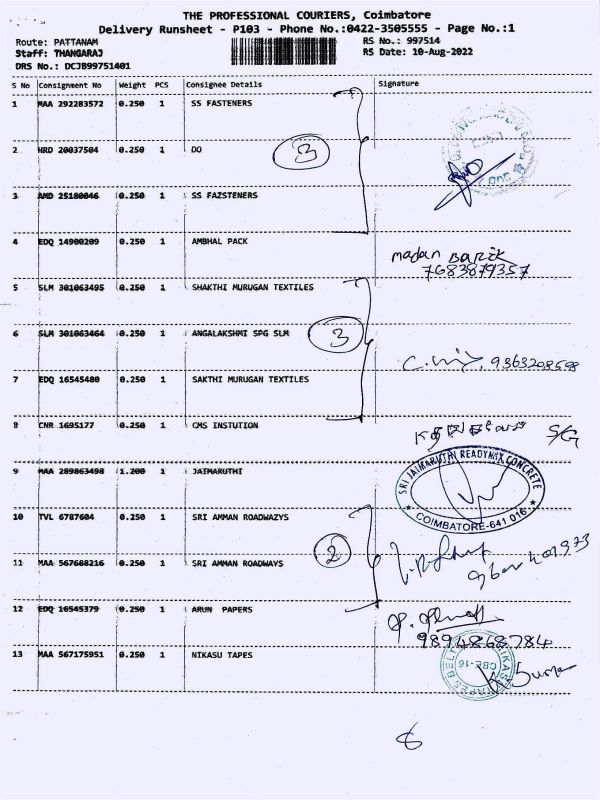 THE PROFESSIONAL COURIERS, Coimbatore
Delivery Runsheet - P103 - Phone No.:0422-3505555 - Page No.:1
Route: PATTANAM RS No.: 997514
Staff: THANGARAJ RS Date: 10-Aug-2022
DRS No.: DCJB99751401
S No Consignment No Weight PCS Consignee Details Signature
1 MAA 292283572 0.250 1 SS FASTENERS
2 HRD 20037504 0.250 1 DO
3
3 AMD 25180046 0.250 1 SS FAZSTENERS
4 EDQ 14900209 0.250 1 AMBHAL PACK
madan BARIK
7683879357
5 SLM 301063495 0.250 1 SHAKTHI MURUGAN TEXTILES
6 SLM 301063464 0.250 1 ANGALAKSHMI SPG SLM
3
9363208598
7 EDQ 16545480 0.250 1 SAKTHI MURUGAN TEXTILES
8 CNR 1695177 0.250 1 CMS INSTUTION
S/G
9 MAA 289863498 1.200 1 JAIMARUTHI
SRI JAIMARUTHI READYMIX CONCRETE
COIMBATORE-641 016
10 TVL 6787604 0.250 1 SRI AMMAN ROADWAZYS
11 MAA 567688216 0.250 1 SRI AMMAN ROADWAYS
2
12 EDQ 16545379 0.250 1 ARUN PAPERS
9894868784
13 MAA 567175951 0.250 1 NIKASU TAPES
CBE-16